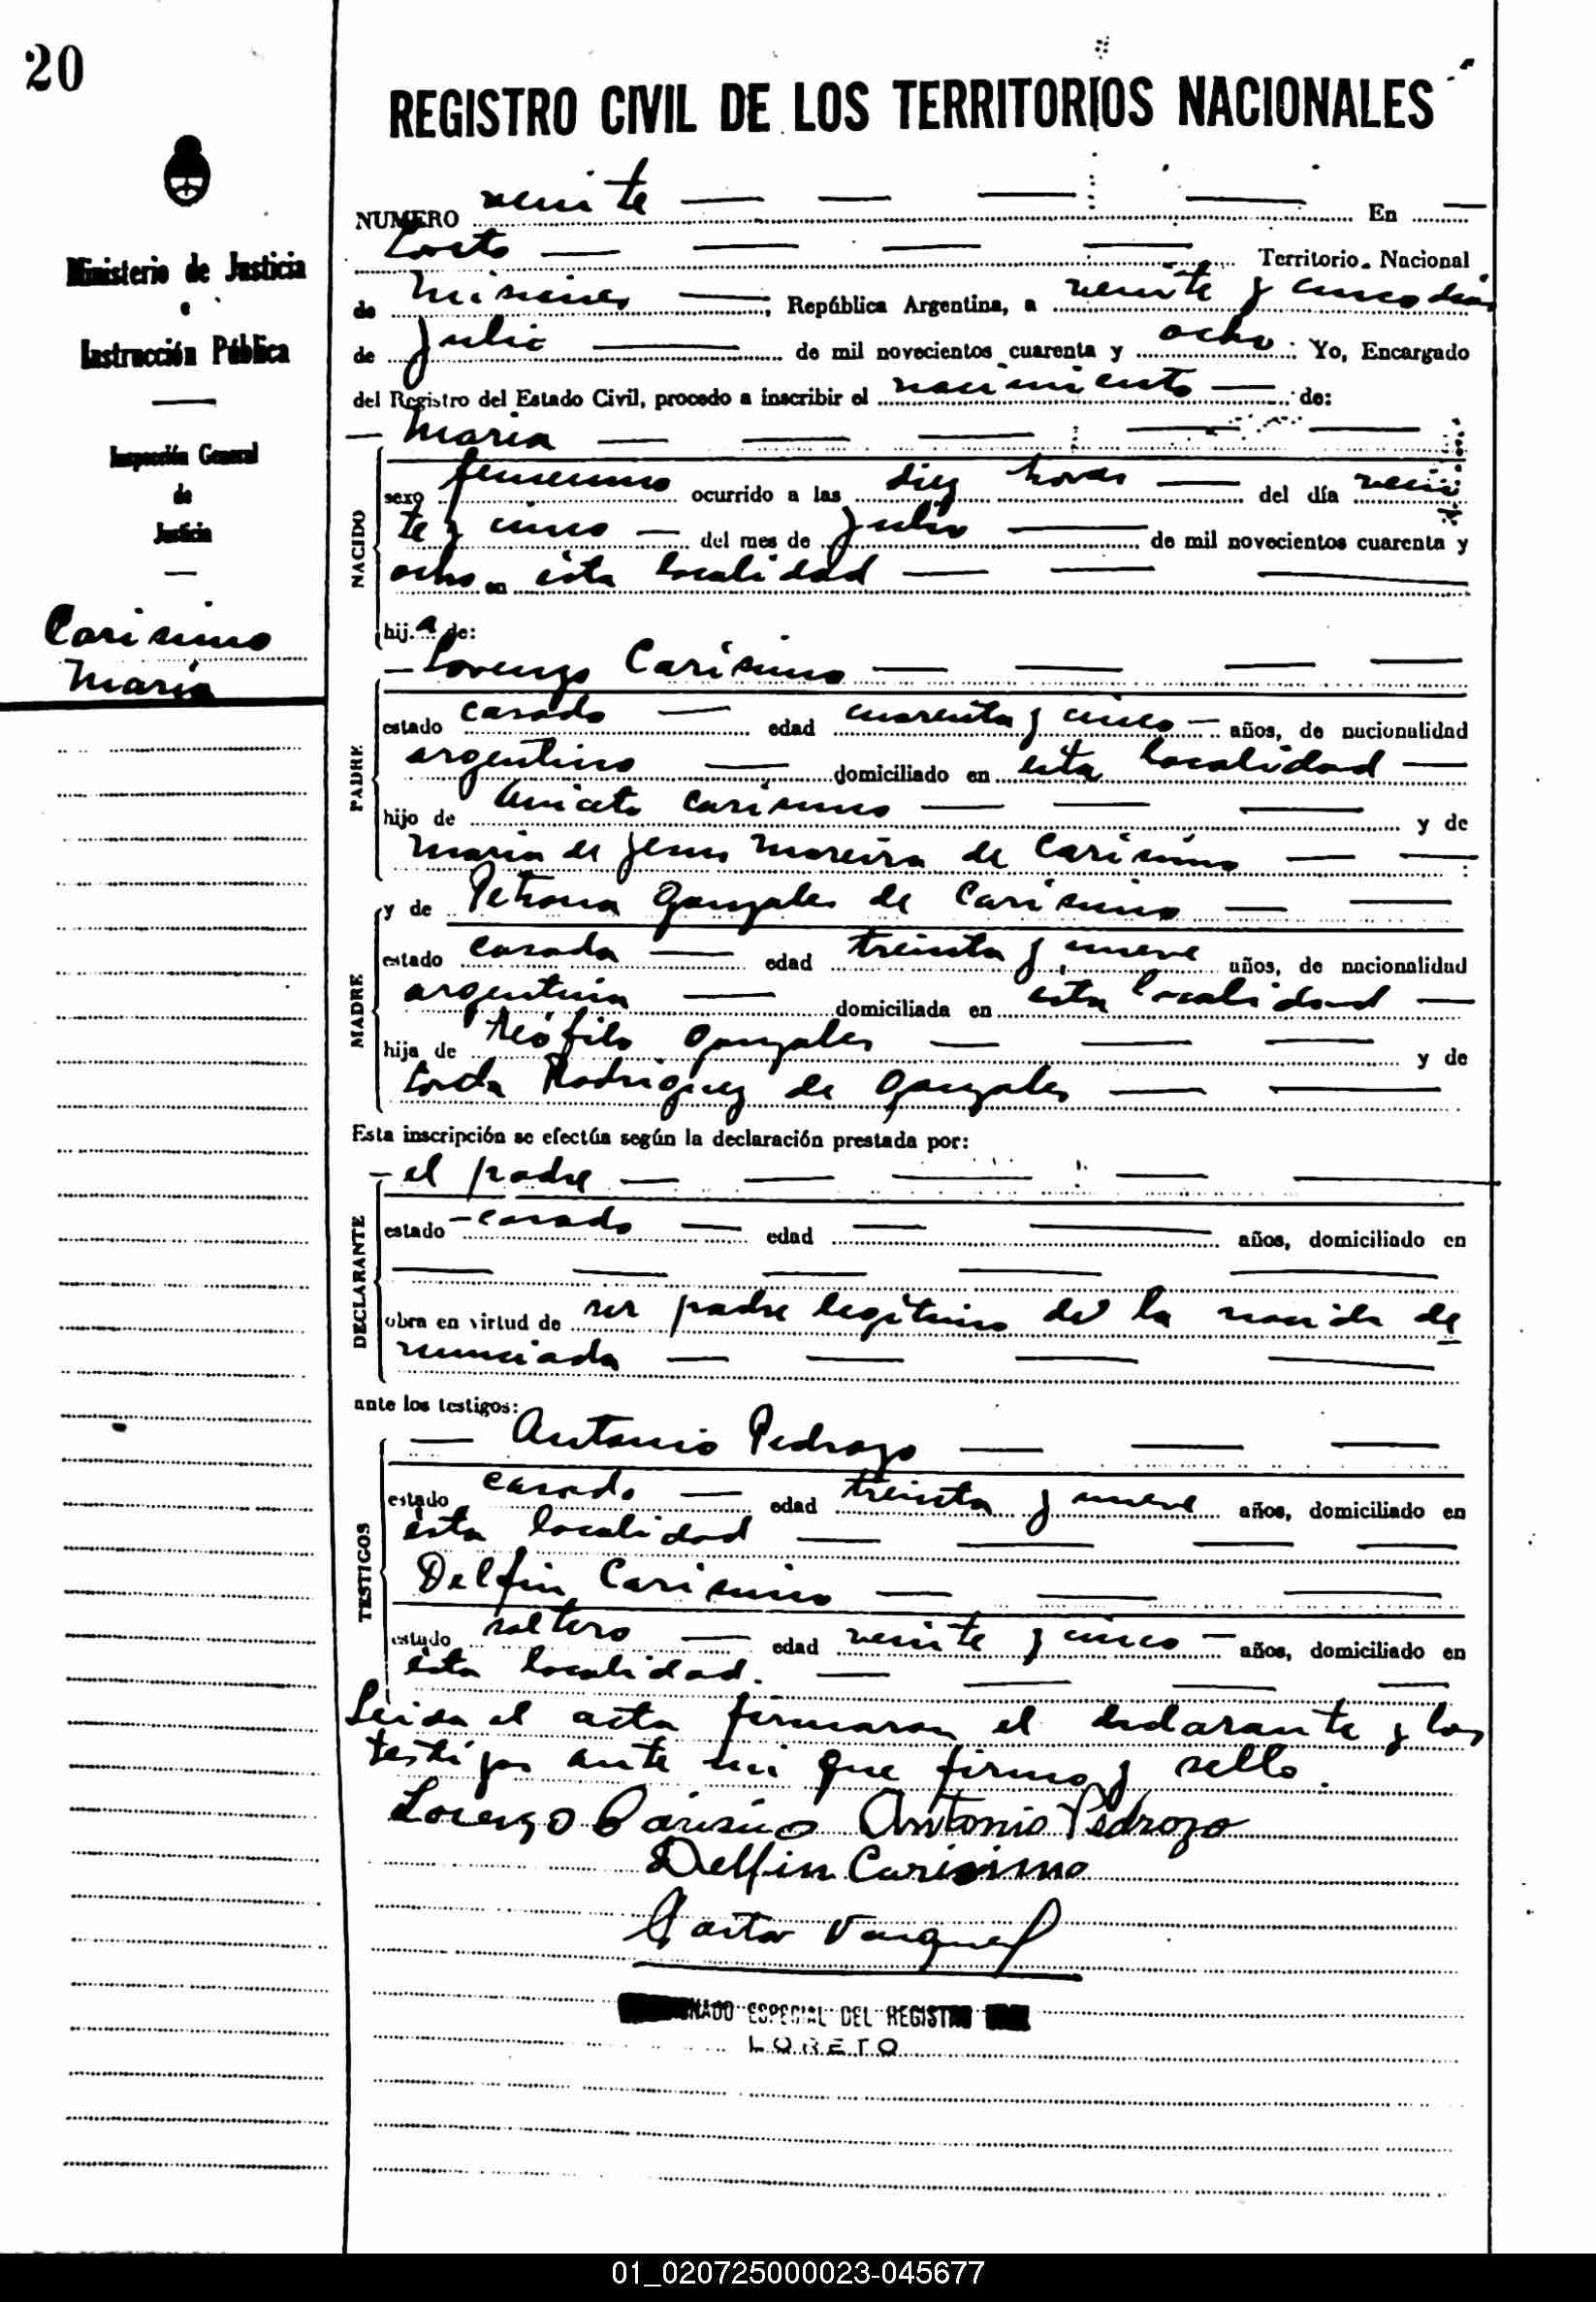 20
REGISTRO CIVIL DE LOS TERRITORIOS NACIONALES
Ministerio de Justicia
e
Instrucción Pública
Inspección General
de
Justicia
Carisimo
Maria
NUMERO veinte En
Loreto Territorio Nacional
de Misiones ; República Argentina, a veinte y cinco dias
de Julio de mil novecientos cuarenta y ocho : Yo, Encargado
del Registro del Estado Civil, procedo a inscribir el nacimiento de:
Maria
NACIDO
sexo femenino ocurrido a las diez horas del día vein
te y cinco del mes de Julio de mil novecientos cuarenta y
ocho en esta localidad
hij a de:
Lorenzo Carisimo
PADRE
estado casado edad cuarenta y cinco años, de nacionalidad
argentino domiciliado en esta localidad
hijo de Aniceto Carisimo y de
Maria de Jesus Moreira de Carisimo
y de Petrona Gonzales de Carisimo
MADRE
estado casada edad treinta y nueve años, de nacionalidad
argentina domiciliada en esta localidad
hija de Teófilo Gonzales y de
Rodriguez de Gonzales
Esta inscripción se efectúa según la declaración prestada por:
el padre
DECLARANTE
estado casado edad años, domiciliado en
obra en virtud de ser padre legitimo de la nacida de
nunciada
ante los testigos:
Antonio Pedrozo
TESTIGOS
estado casado edad treinta y nueve años, domiciliado en
esta localidad
Delfin Carisimo
estado soltero edad veinte y cinco años, domiciliado en
esta localidad.
Leida el acta firmaron el declarante y los
testigos ante mi que firmo y sello.
Lorenzo Carisimo Antonio Pedrozo
Delfin Carisimo
ESPECIAL DEL REGISTRO
LORETO
01_020725000023-045677